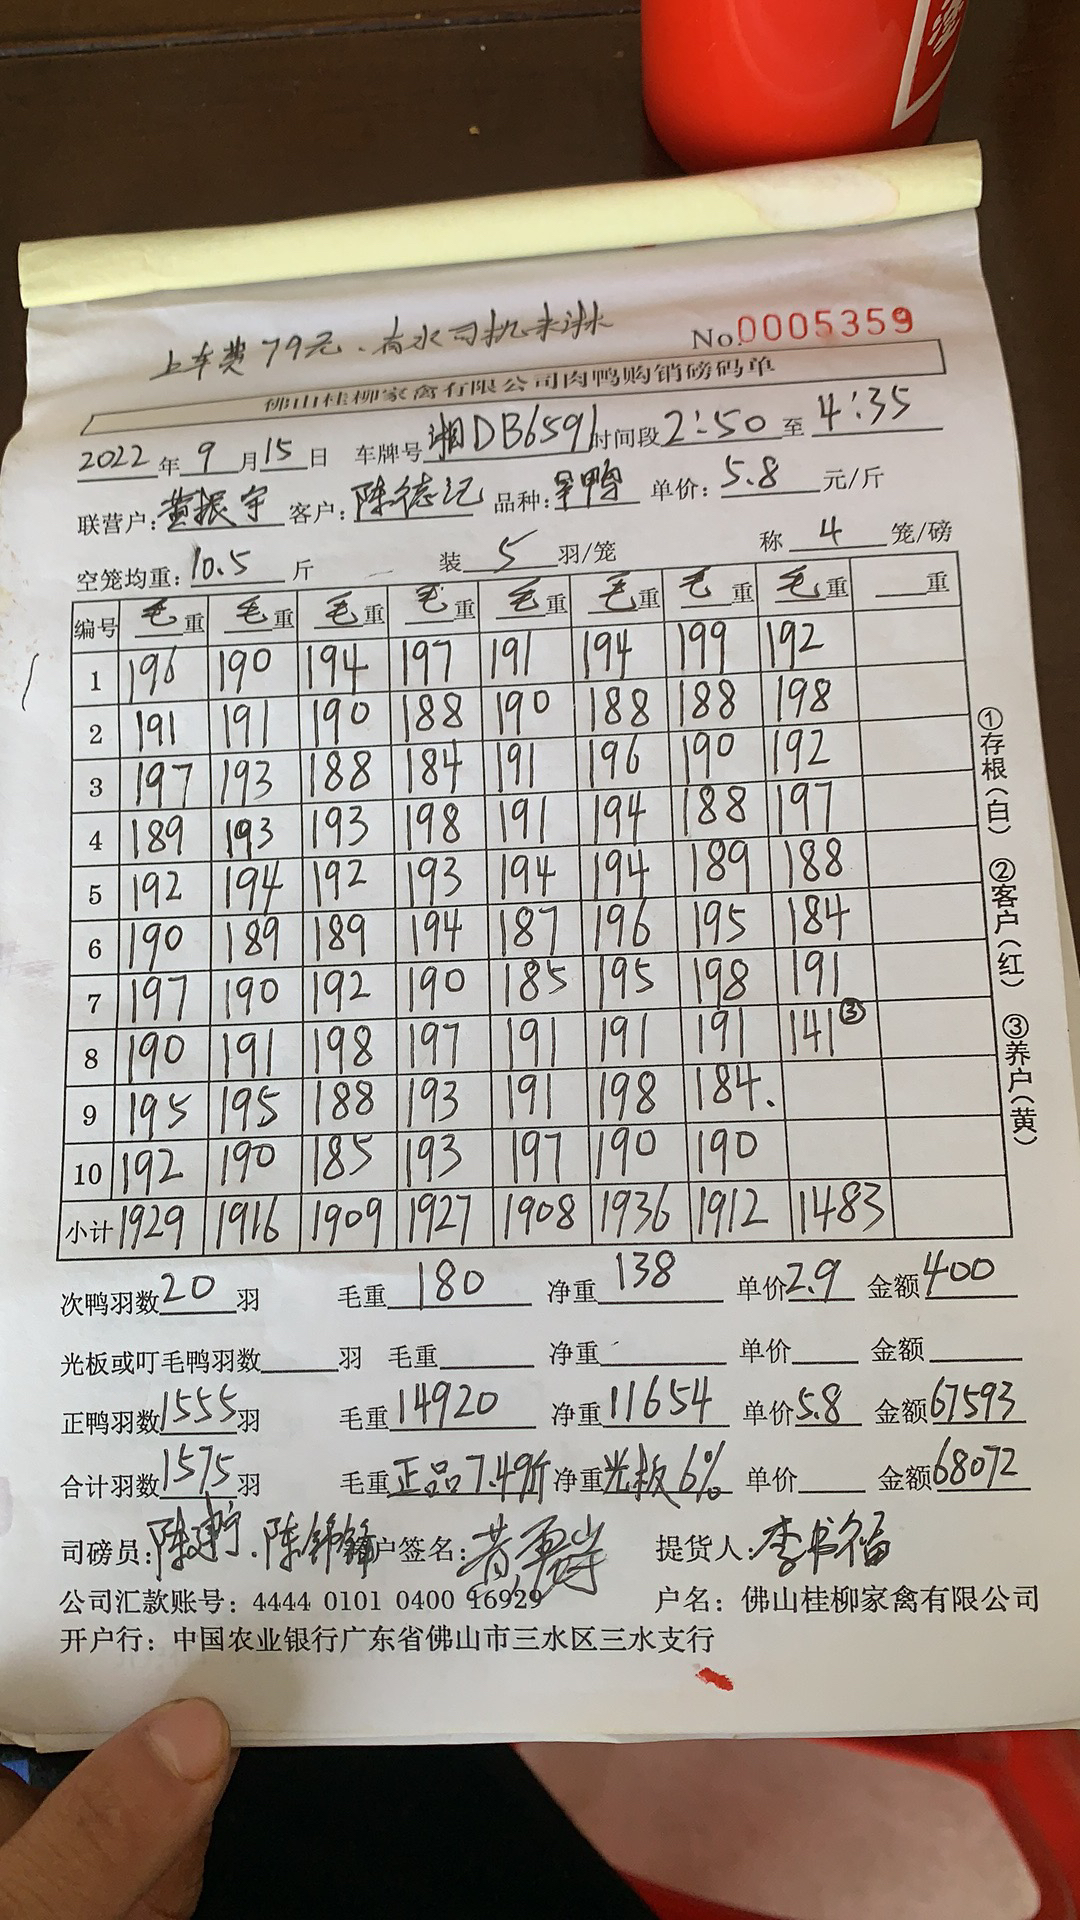 上车费79元、有水司机未淋
No.0005359
佛山桂柳家禽有限公司肉鸭购销磅码单
2022年9月15日 车牌号湘DB6591时间段2:50至4:35
联营户:黄振宇 客户:陈德记 品种:旱鸭 单价:5.8元/斤
空笼均重:10.5斤 装5羽/笼 称4笼/磅
编号 毛重 毛重 毛重 毛重 毛重 毛重 毛重 毛重 重
1 196 190 194 197 191 194 199 192
2 191 191 190 188 190 188 188 198
3 197 193 188 184 191 196 190 192
4 189 193 193 198 191 194 188 197
5 192 194 192 193 194 194 189 188
6 190 189 189 194 187 196 195 184
7 197 190 192 190 185 195 198 191
8 190 191 198 197 191 191 191 141③
9 195 195 188 193 191 198 184.
10 192 190 185 193 197 190 190
小计 1929 1916 1909 1927 1908 1936 1912 1483
①存根(白) ②客户(红) ③养户(黄)
次鸭羽数20羽 毛重180 净重138 单价2.9 金额400
光板或叮毛鸭羽数 羽 毛重 净重 单价 金额
正鸭羽数1555羽 毛重14920 净重11654 单价5.8 金额67593
合计羽数1575羽 毛重正品7.49斤 净重光板6% 单价 金额68072
司磅员:陈 陈锦锋 户签名: 提货人:李书福
公司汇款账号: 4444 0101 0400 16929 户名: 佛山桂柳家禽有限公司
开户行: 中国农业银行广东省佛山市三水区三水支行